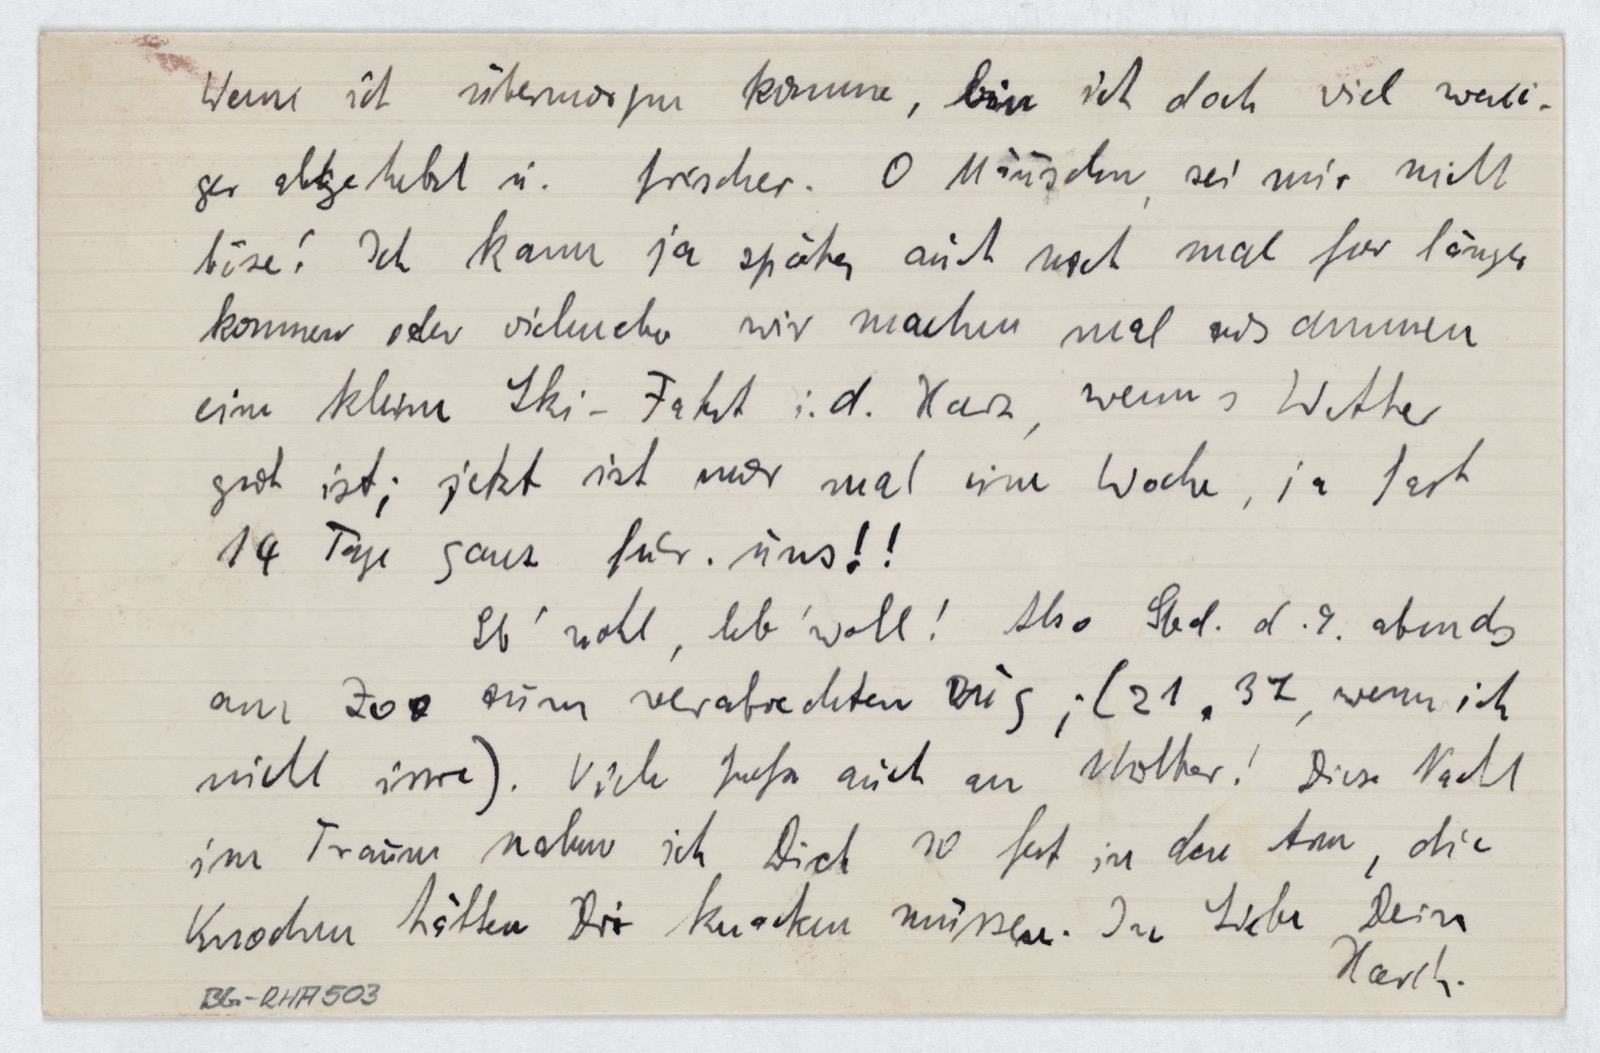 Wenn ich übermorgen komme, bin ich doch viel weni-
ger abgehetzt u. frischer. O Mäuschen, sei mir nicht
böse! Ich kann ja später auch noch mal für länger
kommen oder vielmehr wir machen mal zusammen
eine kleine Ski-Fahrt i. d. Harz, wenn's Wetter
gut ist; jetzt ist nur mal eine Woche, ja fast
14 Tage ganz für uns!!
Leb' wohl, leb' wohl! Also d. 9. abends
am Zoo zum verabredeten Zug; (21.37, wenn ich
nicht irre). Viele Grüße auch an Mutter! Diese Nacht
im Traum nahm ich Dich so fest in den Arm, die
Knochen hätten Dir knacken müssen. In Liebe Dein
BG-RHA503